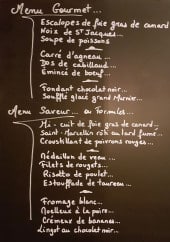 Menu Gourmet...
Escalopes de foie gras de canard
Noix de St Jacques...
Soupe de poissons
Carré d'agneau...
Dos de cabillaud...
Emincé de boeuf...
Fondant chocolat noir...
Soufflé glacé grand Marnier...
Menu Saveur... ou Formules...
Mi-cuit de foie gras de canard..
Saint-Marcellin rôti au lard fumé..
Croustillant de poivrons rouges...
Médaillon de veau...
Filets de rougets...
Risotto de poulet...
Estouffade de taureau...
Fromage blanc...
Moelleux à la poire...
Crémeux de banane...
Lingot au chocolat noir...